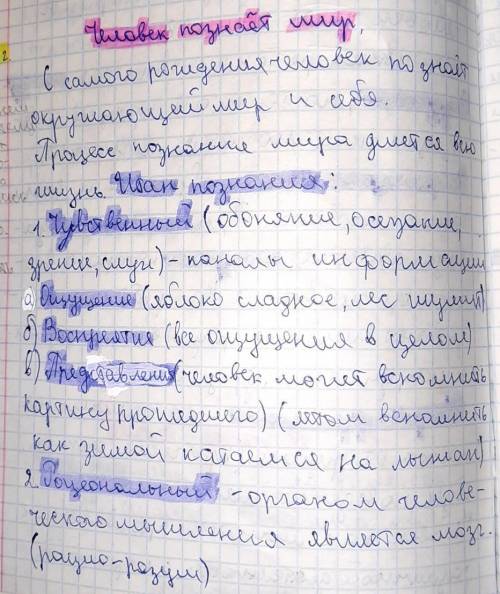 Человек познаёт мир.
С самого рождения человек познаёт
окружающей мир и себя.
Процесс познание мира длится всю
жизнь. Итап познания:
1. Чувственный (обоняние, осезание,
зрение, слух) - каналы информации
а) Ощущение (яблоко сладкое, лес шумит)
б) Восприятие (все ощущения в целом)
в) Представления (человек может вспомнить
картину прошедшего) (летом вспомнить
как зимой катаемся на лыжах)
2. Рацеональный - органом челове-
ческого мышления является мозг.
(рацио-разум)